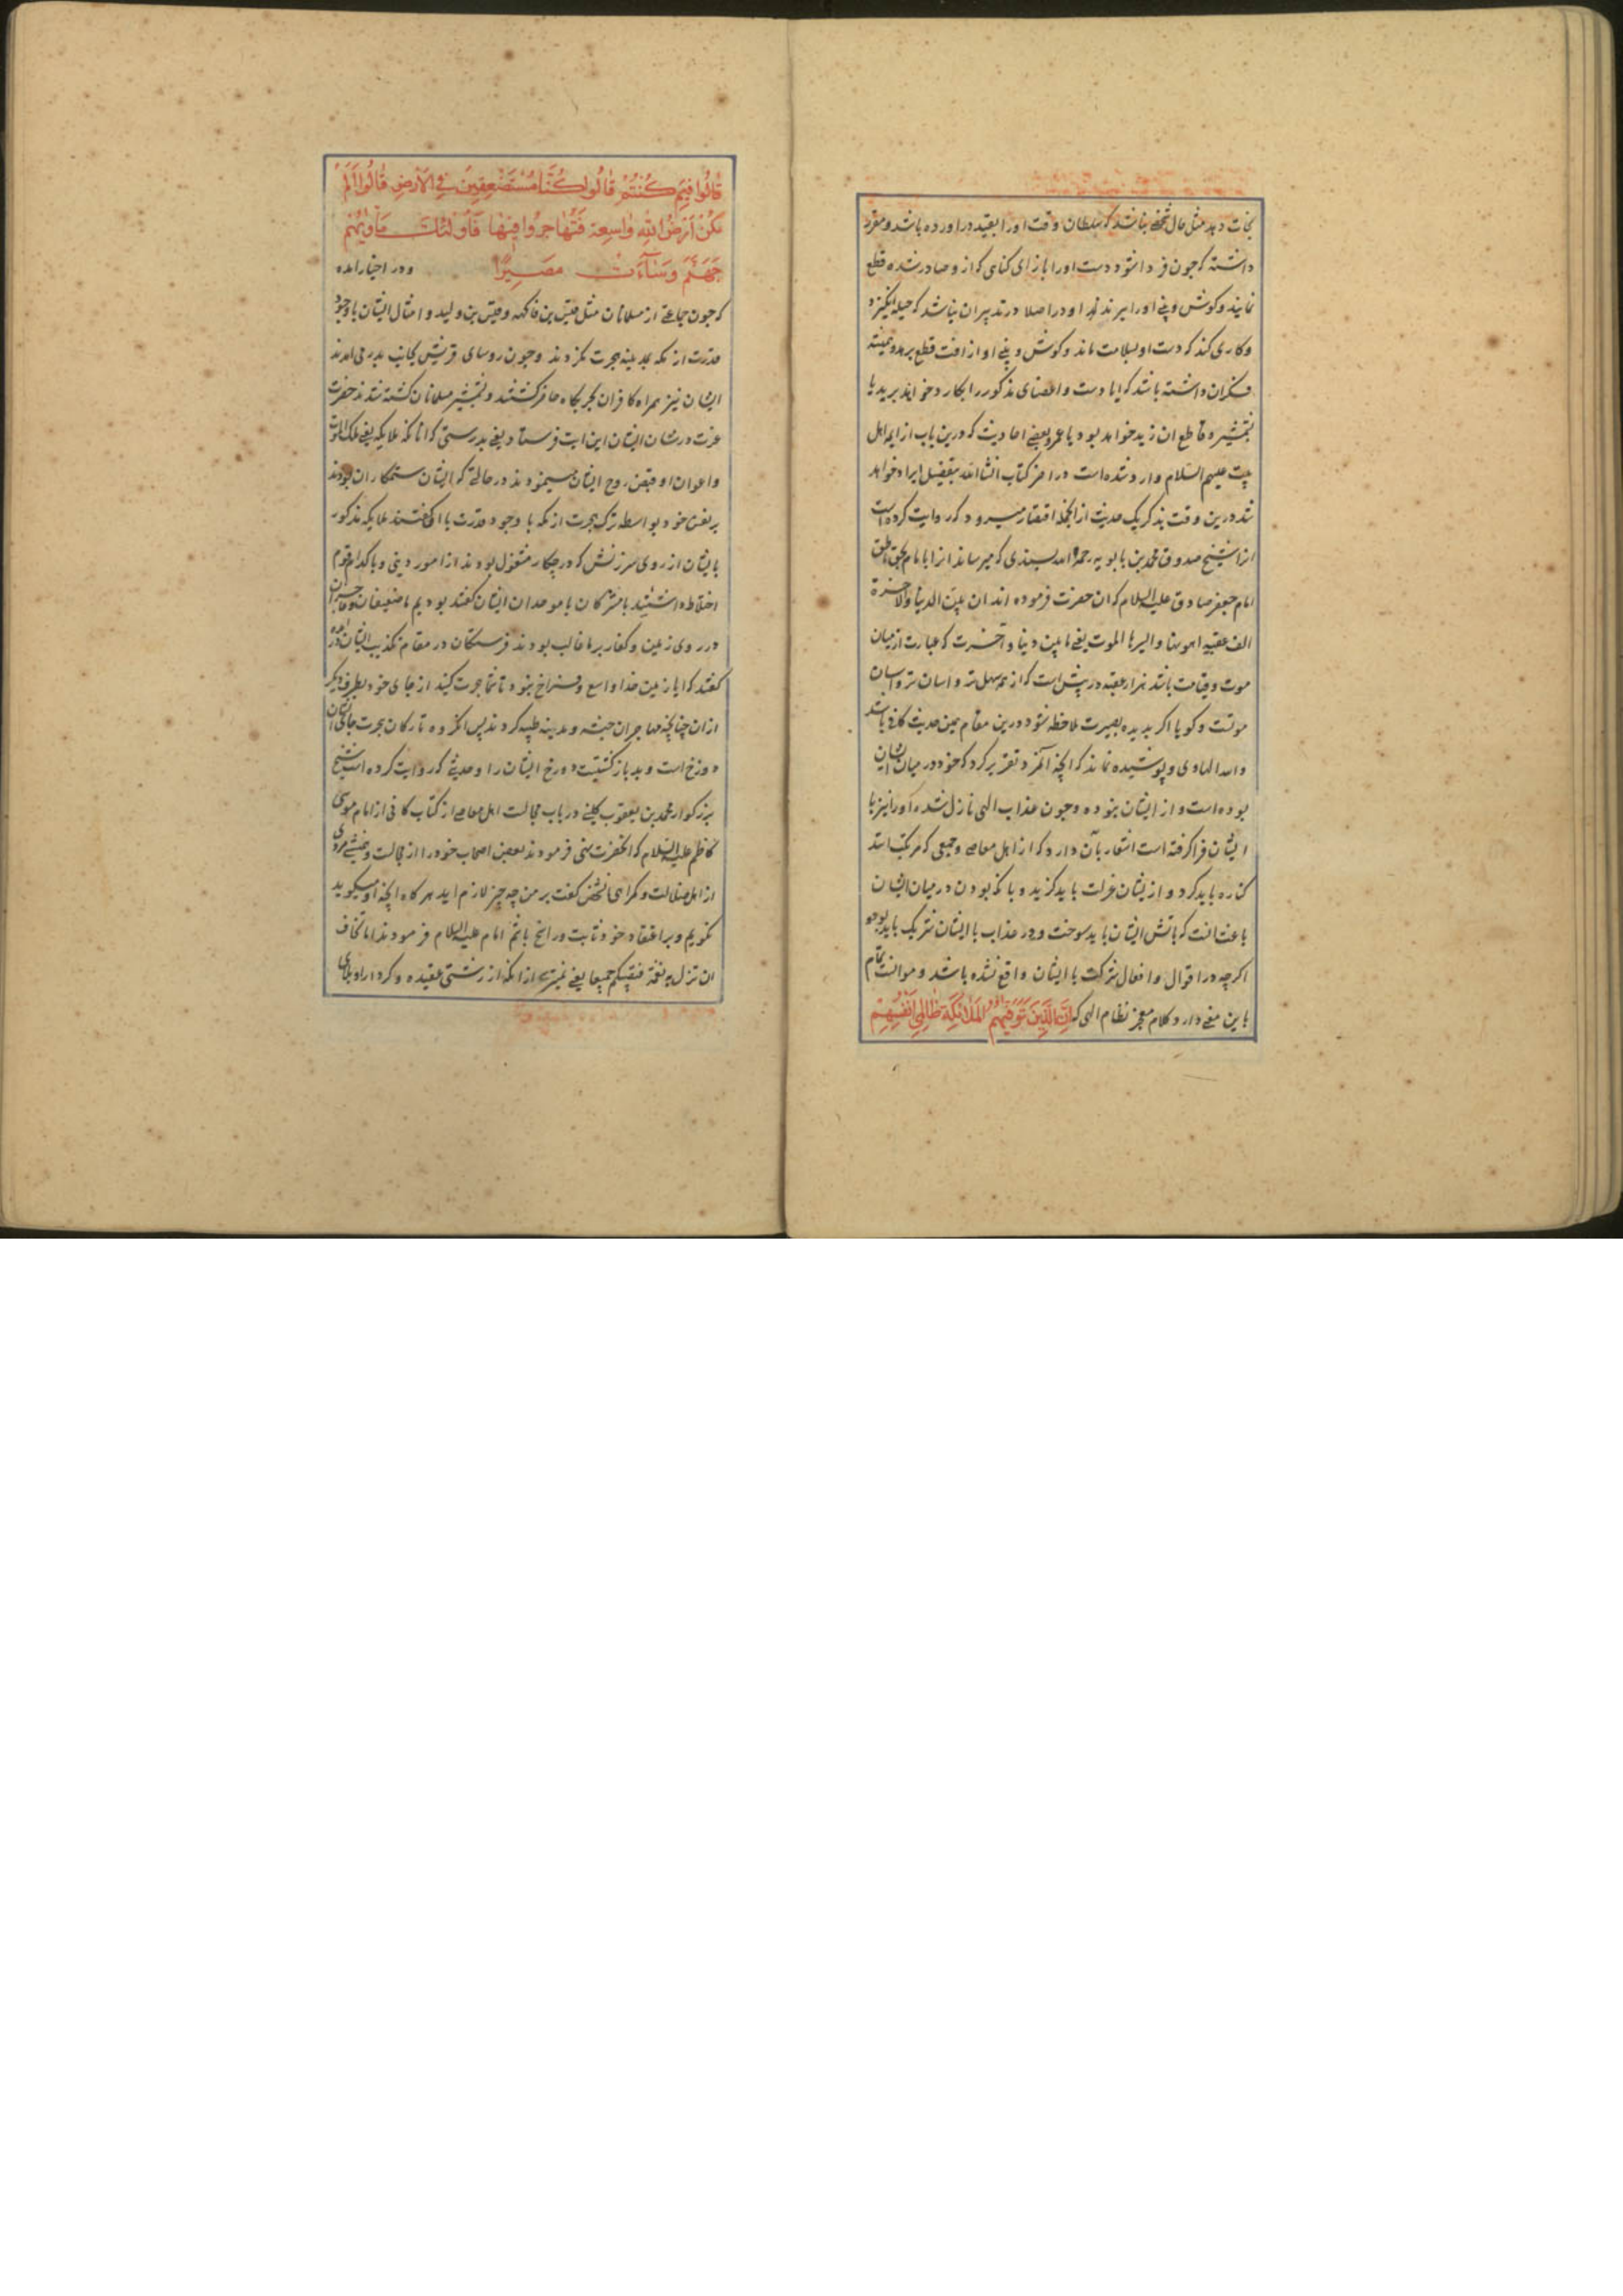 نجات دهد مثل حال شخصی باشد که سلطان وقت او را بقید در اورده باشد و مقرر
داشته که چون فردا شود دست او را بازای کناهی که از و صادر شده قطع
نمایند و کوش و بینی او را ببرند و او در اصلا در تدبیر ان نباشد که حیله انکیزد
و کاری کند که دست او بسلامت ماند و کوش و بینی او از افت قطع برهد و همیشه
فکر ان داشته باشد که ایا دست و اعضای مذکور را بکارد خواهند برید یا
بشمشیر و قاطع ان زید خواهد بود یا عمرو و بعضی احادیث که درین باب از ایمه اهل
بیت علیهم السلام وارد شده است در اخر کتاب انشاالله بتفصیل ایراد خواهد
شد درین وقت بذکر یک حدیث از انجمله اقتصار میرود که روایت کرده است
انرا شیخ صدوق محمد بن بابویه رحمه الله بسندی که میرساند انرا بامام بحق ناطق
امام جعفر صادق علیه السلام که ان حضرت فرموده اند ان بین الدنیا والاخرة
الف عقبه اهونها وایسرها الموت یعنی مابین دنیا و آخرت که عبارت از میان
موت و قیامت باشد هزار عقبه در پیش است که از همه سهل تر و اسان تر
موتست و کویا اکر بدیده بصیرت ملاحظه شود درین مقام همین حدیث کافی باشد
والله الهادی و پوشیده نماند که انچه آنمرد تقریر کرد که خود در میان ایشان
بوده است و از ایشان نبوده و چون عذاب الهی نازل شده او را نیز با
ایشان فرا کرفته است اشعار بآن دارد که از اهل معاصی و جمعی که مرتکب اند
کناره باید کرد و از ایشان عزلت باید کزید و با که بودن در میان ایشان
باعث انست که باتش ایشان باید سوخت و در عذاب با ایشان شریک باید بود
اکرچه در اقوال و افعال شرکت با ایشان واقع نشده باشد و موافقت تمام
باین معنی دارد کلام معجز نظام الهی که اِنَّ الَّذِینَ تَوَفّٰیهُمُ المَلٰائِکَةُ ظٰالِمِی اَنفُسِهِمْ
قٰالُوا فِیمَ کُنْتُمْ قٰالُوا کُنّٰا مُسْتَضْعَفِینَ فِی الاَرْضِ قٰالُوا اَلَمْ
تَکُنْ اَرْضُ اللهِ وٰاسِعَةً فَتُهٰاجِرُوا فِیهٰا فَاُولٰئِکَ مَأْوٰیهُمْ
جَهَنَّمُ وَسٰآءَتْ مَصِیرًا و در اخبار امده
که چون جماعتی از مسلمانان مثل قیس بن فاکهه و قیس بن ولید و امثال ایشان با وجود
قدرت از مکه بمدینه هجرت نکردند و چون روسای قریش بجانب بدر می امدند
ایشان نیز همراه کافران بحربکاه حاضر کشتند و بشمشیر مسلمانان کشته شدند حضرت
عزت در شان ایشان این ایت فرستاد یعنی بدرستی که انانکه ملایکه یعنی ملک الموت
و اعوان او قبض روح ایشان میمودند در حالتی که ایشان ستمکاران بودند
بر نفس خود بواسطه ترک هجرت از مکه با وجود قدرت با ان کفتند ملایکه مذکور
بایشان از روی سرزنش که در چکار مشغول بودند از امور دینی و با کدام قوم
اختلاط داشتید با مشرکان یا موحدان ایشان کفتند بودیم ما ضعیفان و عاجزان
در روی زمین و کفار بر ما غالب بودند فرستکان در مقام تکذیب ایشان در امده
کفتند که ایا زمین خدا واسع و فراخ نبود تا شما هجرت کنید از جای خود بطرف دیکر
از ان چنانچه مهاجران حبشه و مدینه طیبه کردند پس انکروه تارکان هجرت جای ایشان
دوزخ است و بد بازکشتیست دوزخ ایشان را و حدیثی که روایت کرده است شیخ
بزرکوار محمد بن یعقوب کلینی در باب مجالست اهل معاصی از کتاب کافی از امام موسی
کاظم علیه السلام که انحضرت نهی فرمودند بعضی اصحاب خود را از مجالست و همنشینی مردی
از اهل ضلالت و کمراهی انشخص کفت بر من چه چیز لازم اید هر کاه انچه او میکوید
نکویم و بر اعتقاد خود ثابت و راسخ باشم امام علیه السلام فرمودند اما تخاف
ان تنزل به نقمة فتصیبکم جمیعا یعنی نمیترسی از انکه از زشتی عقیده و کردار او بلای